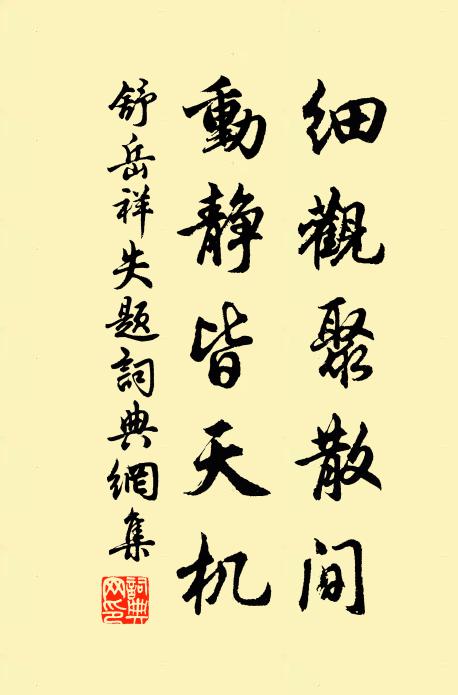 细觀聚散间
動静皆天机
舒岳祥失题詞典網集
詞典網印